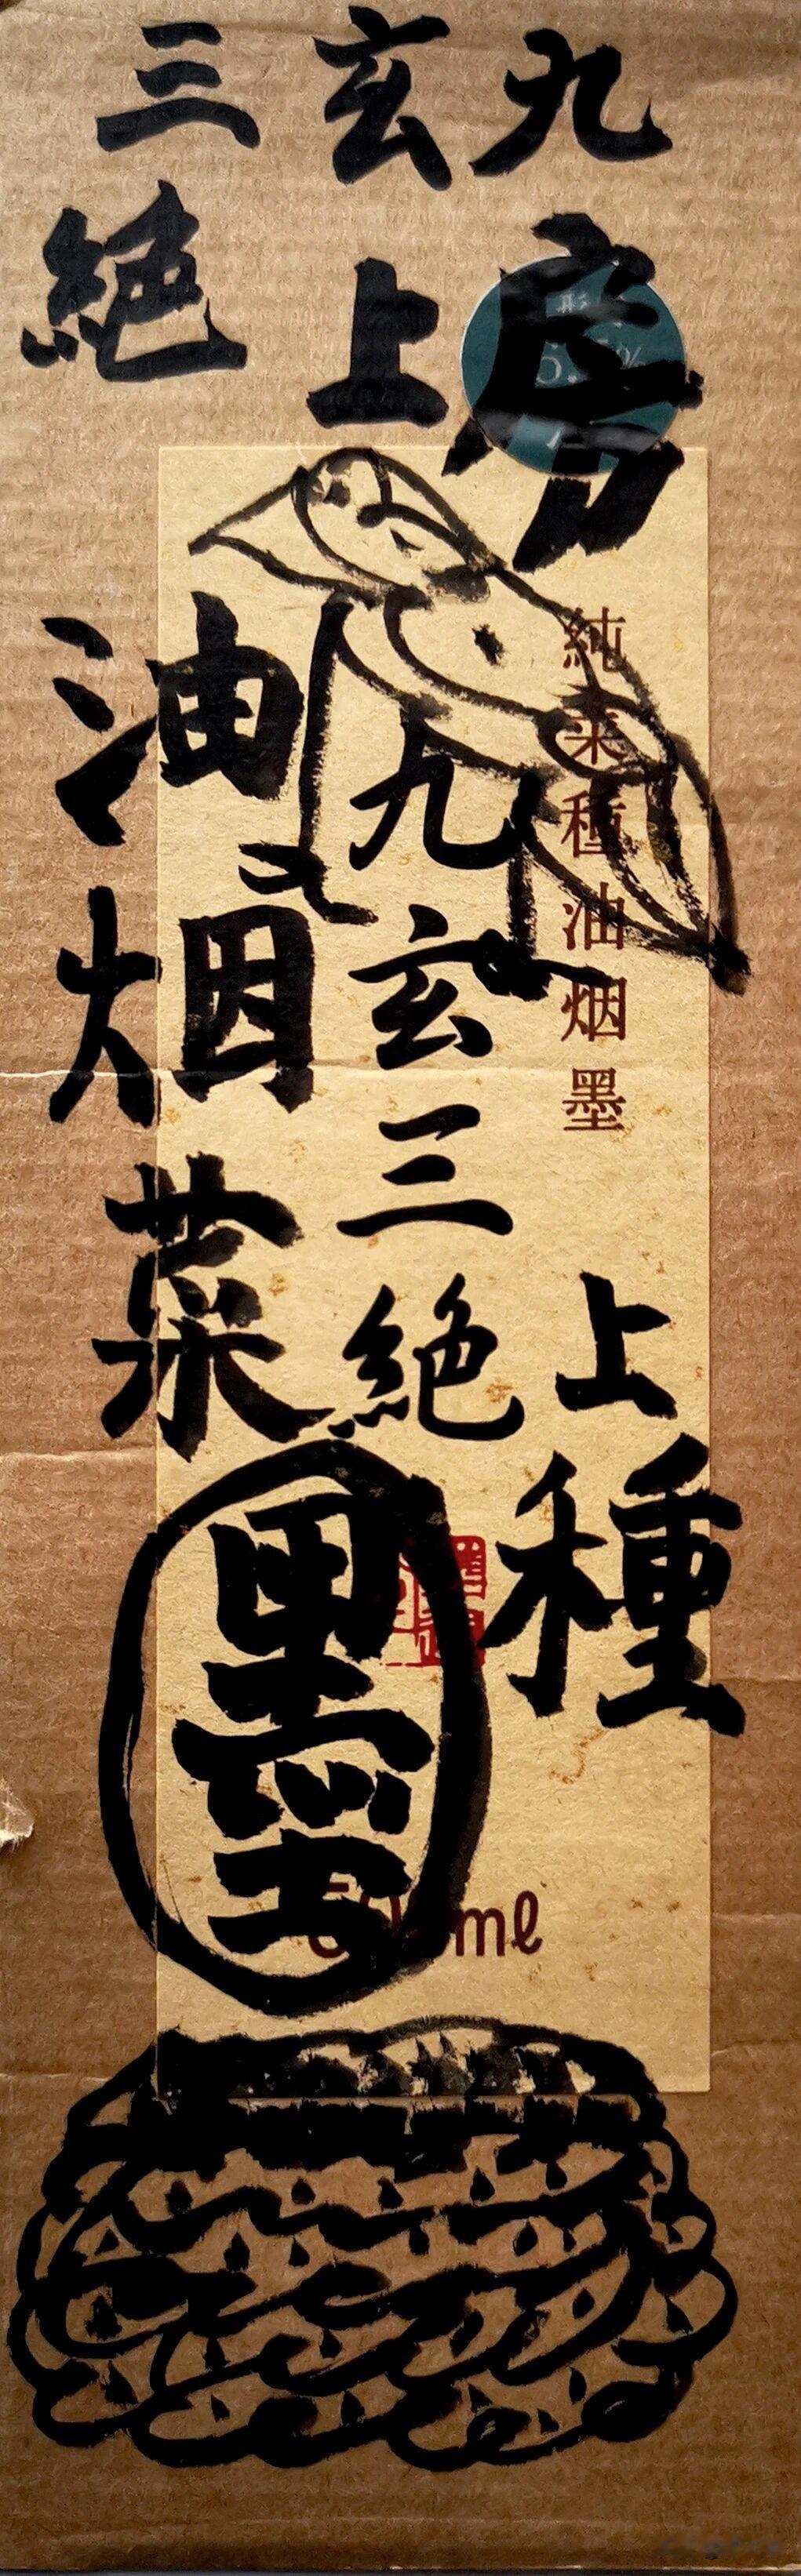 九房
玄上
三絕
純菜種油烟墨
上種
九玄三絕
油烟菜墨
ml